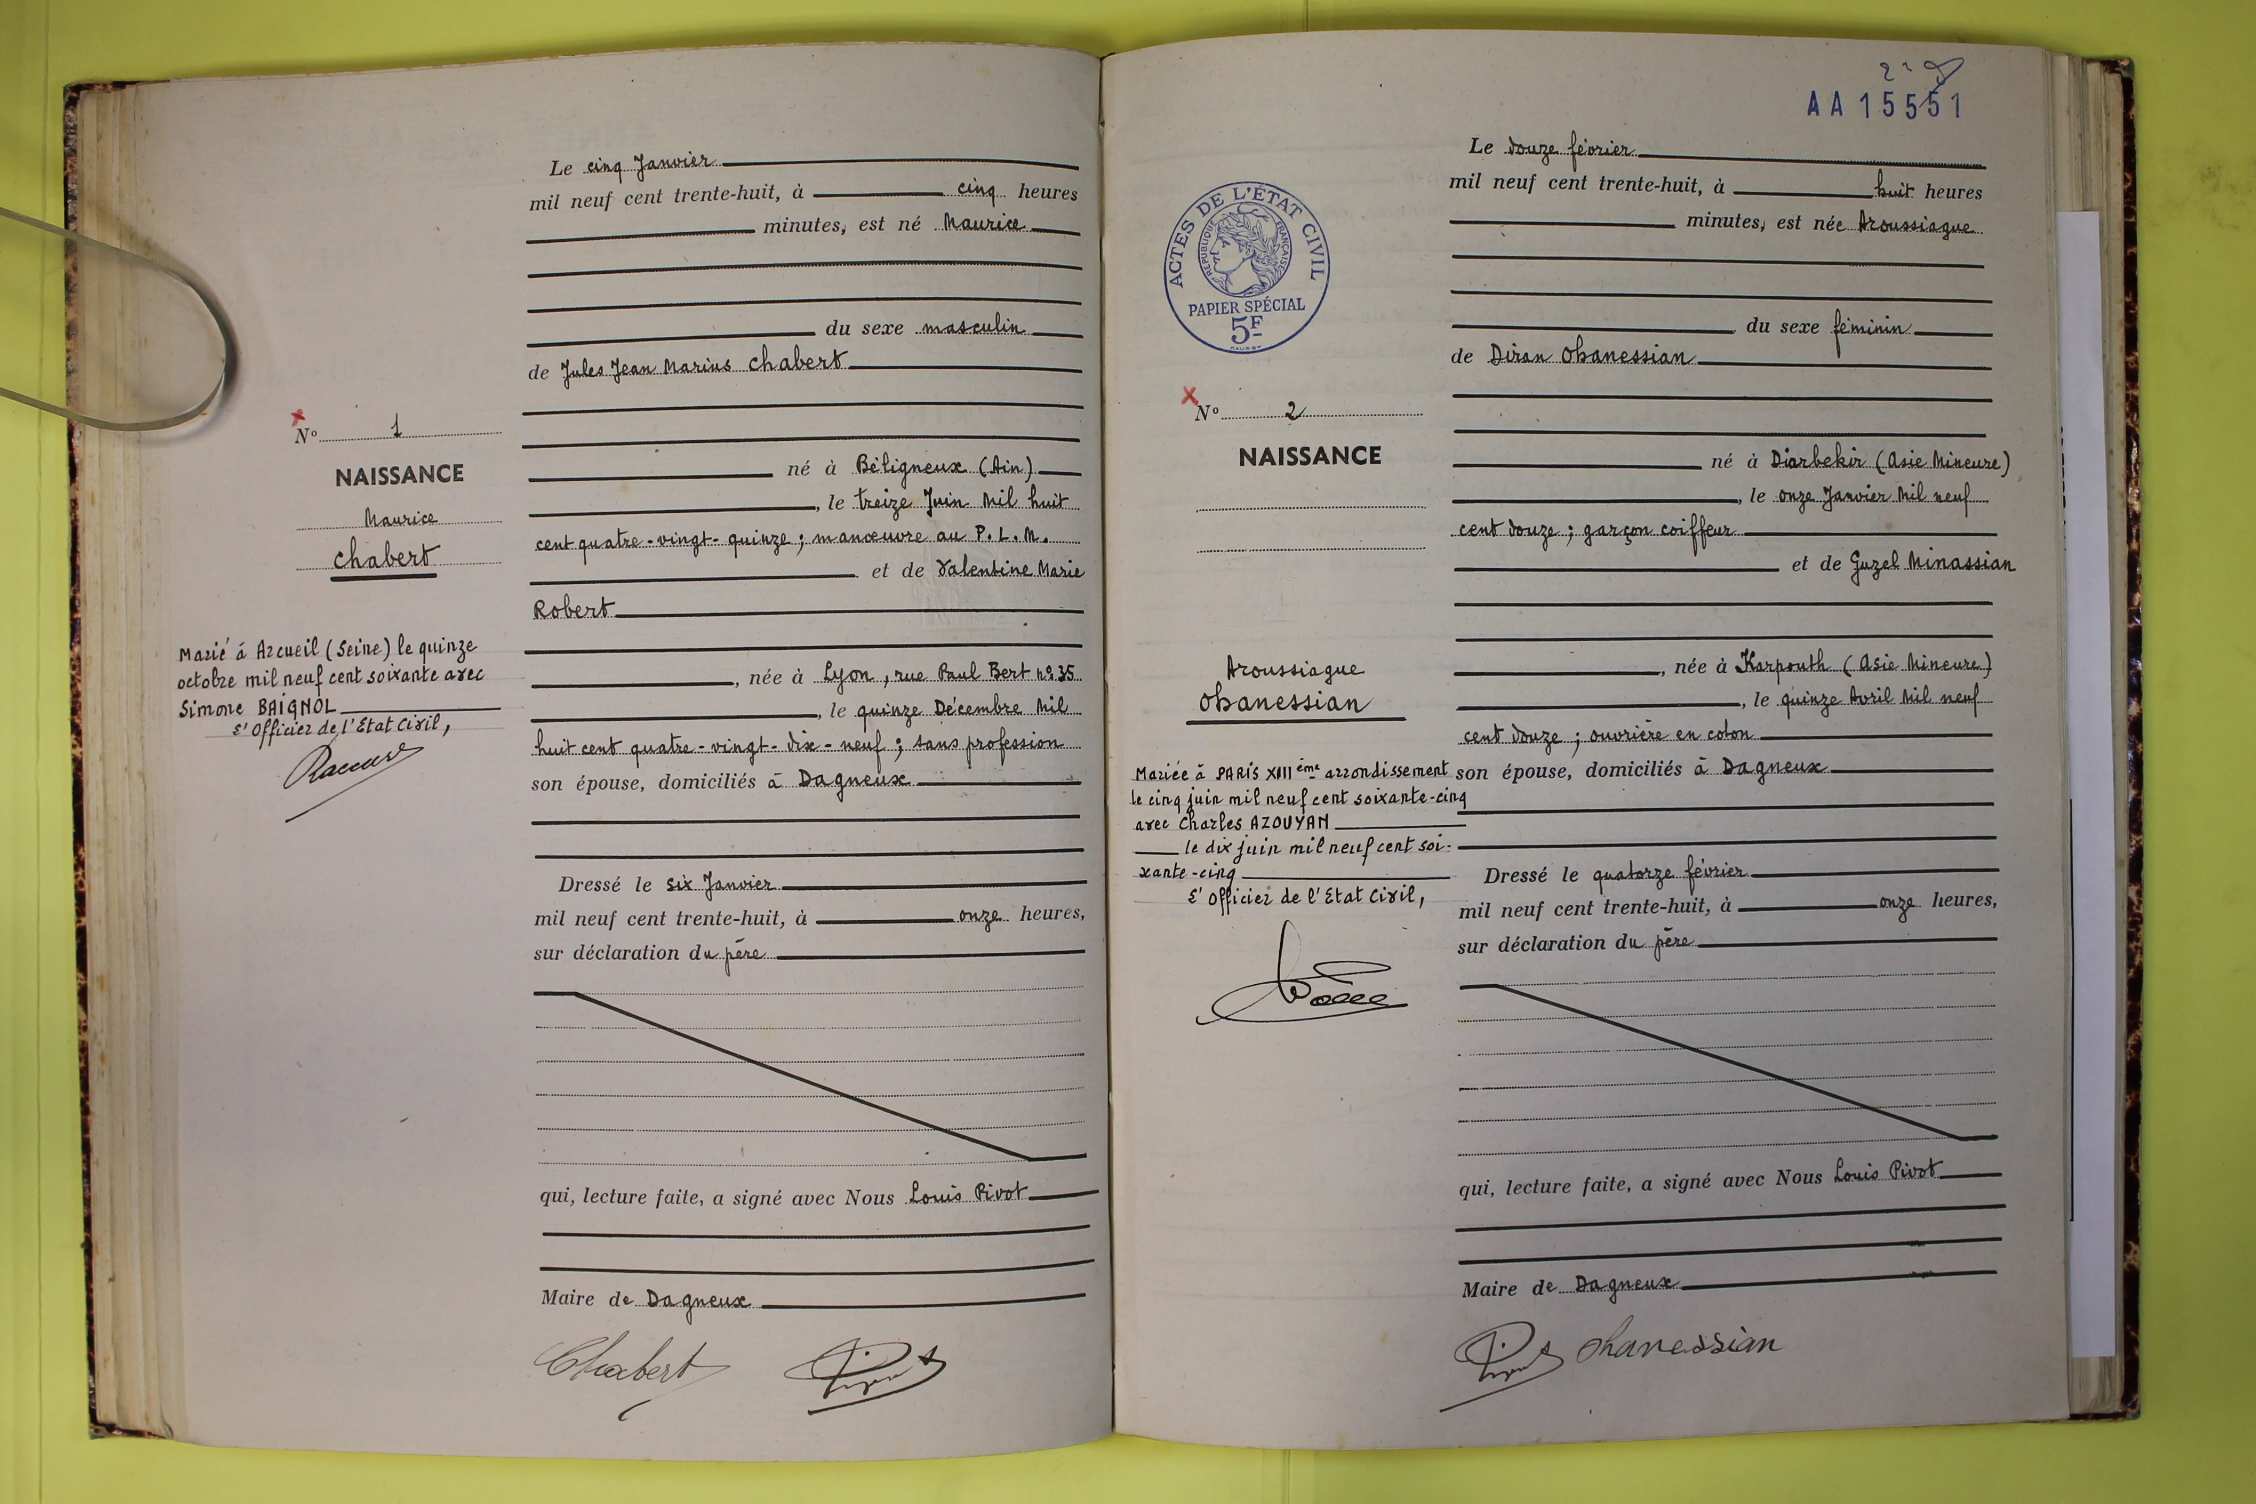 Le cinq Janvier
mil neuf cent trente-huit, à cinq heures
minutes, est né Maurice
du sexe masculin
de Jules Jean Marius Chabert
né à Béligneux (Ain)
, le treize Juin mil huit
cent quatre-vingt-quinze ; manœuvre au P. L. M.
et de Valentine Marie
Robert
, née à Lyon, rue Paul Bert nº 35
, le quinze Décembre mil
huit cent quatre-vingt-dix-neuf ; sans profession
son épouse, domiciliés à Dagneux
Dressé le six Janvier
mil neuf cent trente-huit, à onze heures,
sur déclaration du père
qui, lecture faite, a signé avec Nous Louis Pivot
Maire de Dagneux
Chabert Pivot
Nº 1
NAISSANCE
Maurice
Chabert
Marié à Arcueil (Seine) le quinze
octobre mil neuf cent soixante avec
Simone BAIGNOL
L'Officier de l'Etat Civil,
AA 15551
Le douze février
mil neuf cent trente-huit, à huit heures
minutes, est née Aroussiague
du sexe féminin
de Diran Ohanessian
né à Diarbekir (Asie Mineure)
, le onze Janvier mil neuf
cent douze ; garçon coiffeur
et de Guzel Minassian
, née à Karpouth (Asie Mineure)
, le quinze Avril mil neuf
cent douze ; ouvrière en coton
son épouse, domiciliés à Dagneux
Dressé le quatorze février
mil neuf cent trente-huit, à onze heures,
sur déclaration du père
qui, lecture faite, a signé avec Nous Louis Pivot
Maire de Dagneux
Pivot Ohanessian
ACTES DE L'ÉTAT CIVIL
RÉPUBLIQUE FRANÇAISE
PAPIER SPÉCIAL
5F
Nº 2
NAISSANCE
Aroussiague
Ohanessian
Mariée à PARIS XIIIème arrondissement
le cinq juin mil neuf cent soixante-cinq
avec Charles AZOUYAN
le dix juin mil neuf cent soi-
xante-cinq
L'Officier de l'Etat Civil,